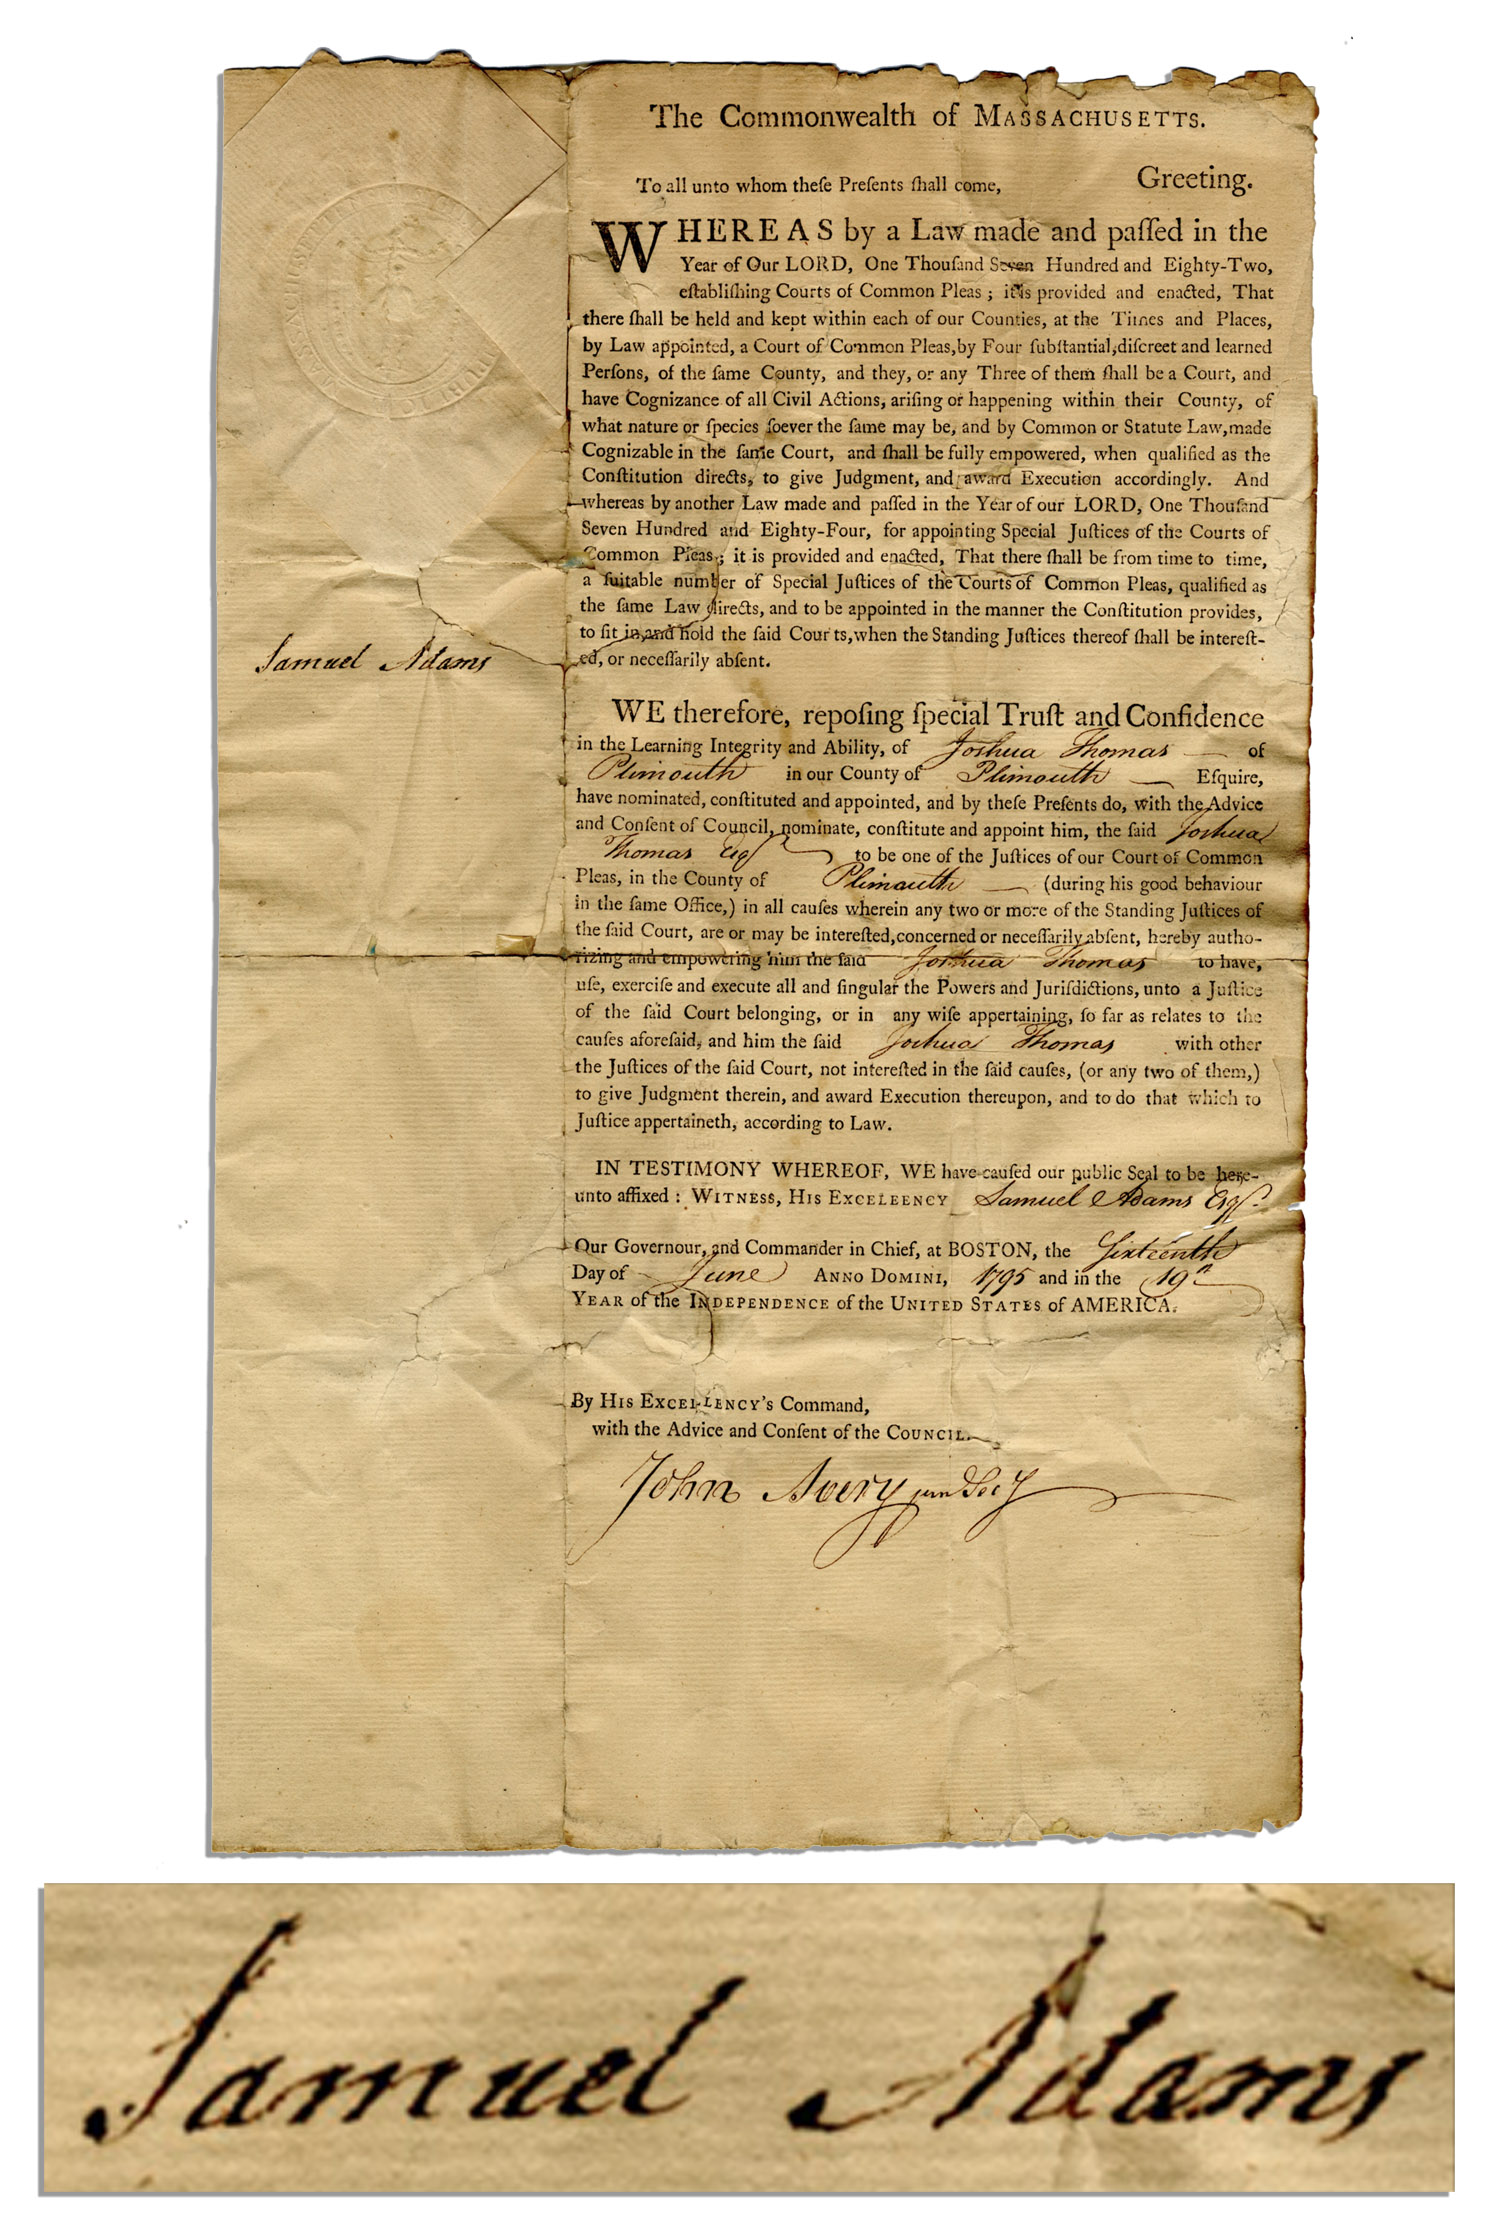 The Commonwealth of MASSACHUSETTS.
To all unto whom theſe Preſents ſhall come, Greeting.
WHEREAS by a Law made and paſſed in the
Year of Our LORD, One Thouſand Seven Hundred and Eighty-Two,
eſtabliſhing Courts of Common Pleas; it is provided and enacted, That
there ſhall be held and kept within each of our Counties, at the Times and Places,
by Law appointed, a Court of Common Pleas, by Four ſubſtantial, diſcreet and learned
Perſons, of the ſame County, and they, or any Three of them ſhall be a Court, and
have Cognizance of all Civil Actions, ariſing or happening within their County, of
what nature or ſpecies ſoever the ſame may be, and by Common or Statute Law, made
Cognizable in the ſame Court, and ſhall be fully empowered, when qualified as the
Conſtitution directs, to give Judgment, and award Execution accordingly. And
whereas by another Law made and paſſed in the Year of our LORD, One Thouſand
Seven Hundred and Eighty-Four, for appointing Special Juſtices of the Courts of
Common Pleas; it is provided and enacted, That there ſhall be from time to time,
a ſuitable number of Special Juſtices of the Courts of Common Pleas, qualified as
the ſame Law directs, and to be appointed in the manner the Conſtitution provides,
to ſit in, and hold the ſaid Courts, when the Standing Juſtices thereof ſhall be intereſt-
ed, or neceſſarily abſent.
Samuel Adams
WE therefore, repoſing ſpecial Truſt and Confidence
in the Learning Integrity and Ability, of Joshua Thomas of
Plimouth in our County of Plimouth Eſquire,
have nominated, conſtituted and appointed, and by theſe Preſents do, with the Advice
and Conſent of Council, nominate, conſtitute and appoint him, the ſaid Joshua
Thomas Esqr to be one of the Juſtices of our Court of Common
Pleas, in the County of Plimouth (during his good behaviour
in the ſame Office,) in all cauſes wherein any two or more of the Standing Juſtices of
the ſaid Court, are or may be intereſted, concerned or neceſſarily abſent, hereby autho-
rizing and empowering him the ſaid Joshua Thomas to have,
uſe, exerciſe and execute all and ſingular the Powers and Juriſdictions, unto a Juſtice
of the ſaid Court belonging, or in any wiſe appertaining, ſo far as relates to the
cauſes aforeſaid, and him the ſaid Joshua Thomas with other
the Juſtices of the ſaid Court, not intereſted in the ſaid cauſes, (or any two of them,)
to give Judgment therein, and award Execution thereupon, and to do that which to
Juſtice appertaineth, according to Law.
IN TESTIMONY WHEREOF, WE have cauſed our public Seal to be here-
unto affixed: WITNESS, HIS EXCELEENCY Samuel Adams Esqr.
Our Governour, and Commander in Chief, at BOSTON, the Sixteenth
Day of June ANNO DOMINI, 1795 and in the 19th
YEAR of the INDEPENDENCE of the UNITED STATES of AMERICA.
By HIS EXCELLENCY'S Command,
with the Advice and Conſent of the COUNCIL.
John Avery jun Secy
Samuel Adams